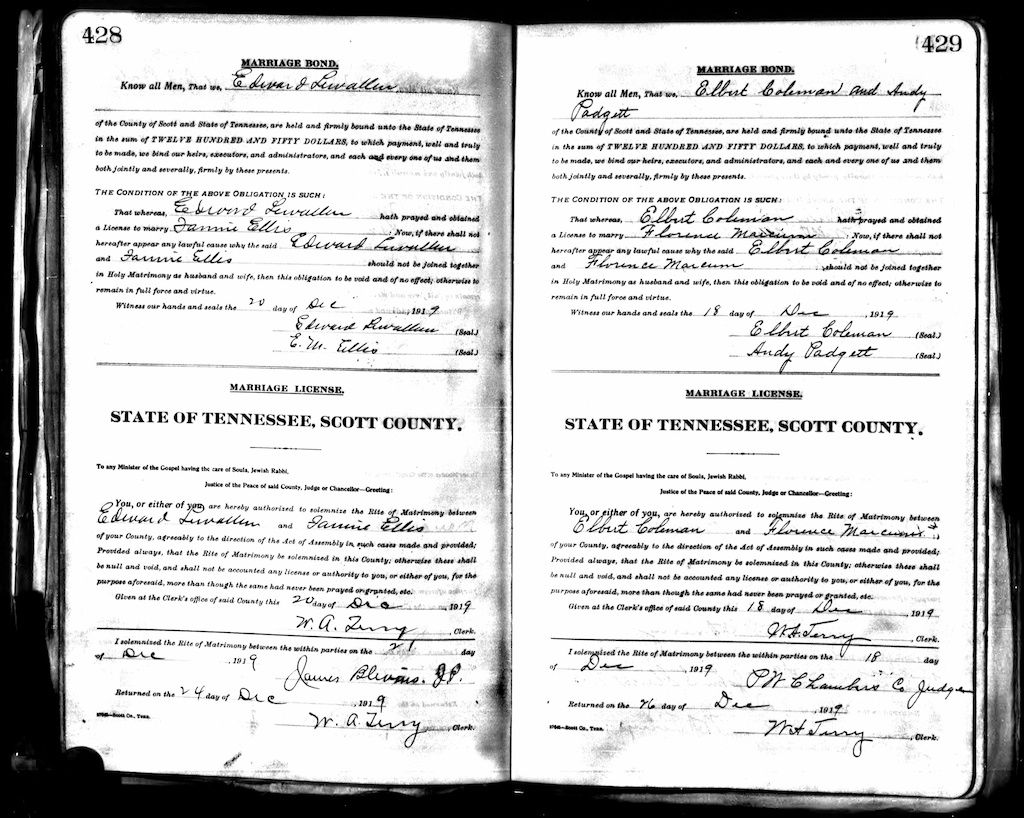 428
MARRIAGE BOND.
Know all Men, That we, Edward Lewallen
of the County of Scott and State of Tennessee, are held and firmly bound unto the State of Tennessee
in the sum of TWELVE HUNDRED AND FIFTY DOLLARS, to which payment, well and truly
to be made, we bind our heirs, executors, and administrators, and each and every one of us and them
both jointly and severally, firmly by these presents.
THE CONDITION OF THE ABOVE OBLIGATION IS SUCH:
That whereas, Edward Lewallen hath prayed and obtained
a License to marry Fannie Ellis ; Now, if there shall not
hereafter appear any lawful cause why the said Edward Lewallen
and Fannie Ellis should not be joined together
in Holy Matrimony as husband and wife, then this obligation to be void and of no effect; otherwise to
remain in full force and virtue.
Witness our hands and seals the 20 day of Dec , 1919
Edward Lewallen (Seal.)
E. M. Ellis (Seal.)
MARRIAGE LICENSE.
STATE OF TENNESSEE, SCOTT COUNTY.
To any Minister of the Gospel having the care of Souls, Jewish Rabbi,
Justice of the Peace of said County, Judge or Chancellor—Greeting:
You, or either of you, are hereby authorized to solemnize the Rite of Matrimony between
Edward Lewallen and Fannie Ellis
of your County, agreeably to the direction of the Act of Assembly in such cases made and provided;
Provided always, that the Rite of Matrimony be solemnized in this County; otherwise these shall
be null and void, and shall not be accounted any license or authority to you, or either of you, for the
purpose aforesaid, more than though the same had never been prayed or granted, etc.
Given at the Clerk's office of said County this 20 day of Dec , 1919
W. A. Terry , Clerk.
I solemnized the Rite of Matrimony between the within parties on the 21 day
of Dec , 1919
James Blevins. J.P.
Returned on the 24 day of Dec , 1919
W. A Terry , Clerk.
—Scott Co., Tenn.
429
MARRIAGE BOND.
Know all Men, That we, Elbert Coleman and Andy
Padgett
of the County of Scott and State of Tennessee, are held and firmly bound unto the State of Tennessee
in the sum of TWELVE HUNDRED AND FIFTY DOLLARS, to which payment, well and truly
to be made, we bind our heirs, executors, and administrators, and each and every one of us and them
both jointly and severally, firmly by these presents.
THE CONDITION OF THE ABOVE OBLIGATION IS SUCH:
That whereas, Elbert Coleman hath prayed and obtained
a License to marry Florence Marcum ; Now, if there shall not
hereafter appear any lawful cause why the said Elbert Coleman
and Florence Marcum should not be joined together
in Holy Matrimony as husband and wife, then this obligation to be void and of no effect; otherwise to
remain in full force and virtue.
Witness our hands and seals the 18 day of Dec 1919
Elbert Coleman (Seal.)
Andy Padgett (Seal.)
MARRIAGE LICENSE.
STATE OF TENNESSEE, SCOTT COUNTY.
To any Minister of the Gospel having the care of Souls, Jewish Rabbi,
Justice of the Peace of said County, Judge or Chancellor—Greeting:
You, or either of you, are hereby authorized to solemnize the Rite of Matrimony between
Elbert Coleman and Florence Marcum
of your County, agreeably to the direction of the Act of Assembly in such cases made and provided;
Provided always, that the Rite of Matrimony be solemnized in this County; otherwise these shall
be null and void, and shall not be accounted any license or authority to you, or either of you, for the
purpose aforesaid, more than though the same had never been prayed or granted, etc.
Given at the Clerk's office of said County this 18 day of Dec , 1919
W.A. Terry , Clerk.
I solemnized the Rite of Matrimony between the within parties on the 18 day
of Dec , 1919
P W Chambers Co Judge
Returned on the 26 day of Dec , 1919
W A Terry , Clerk.
—Scott Co., Tenn.